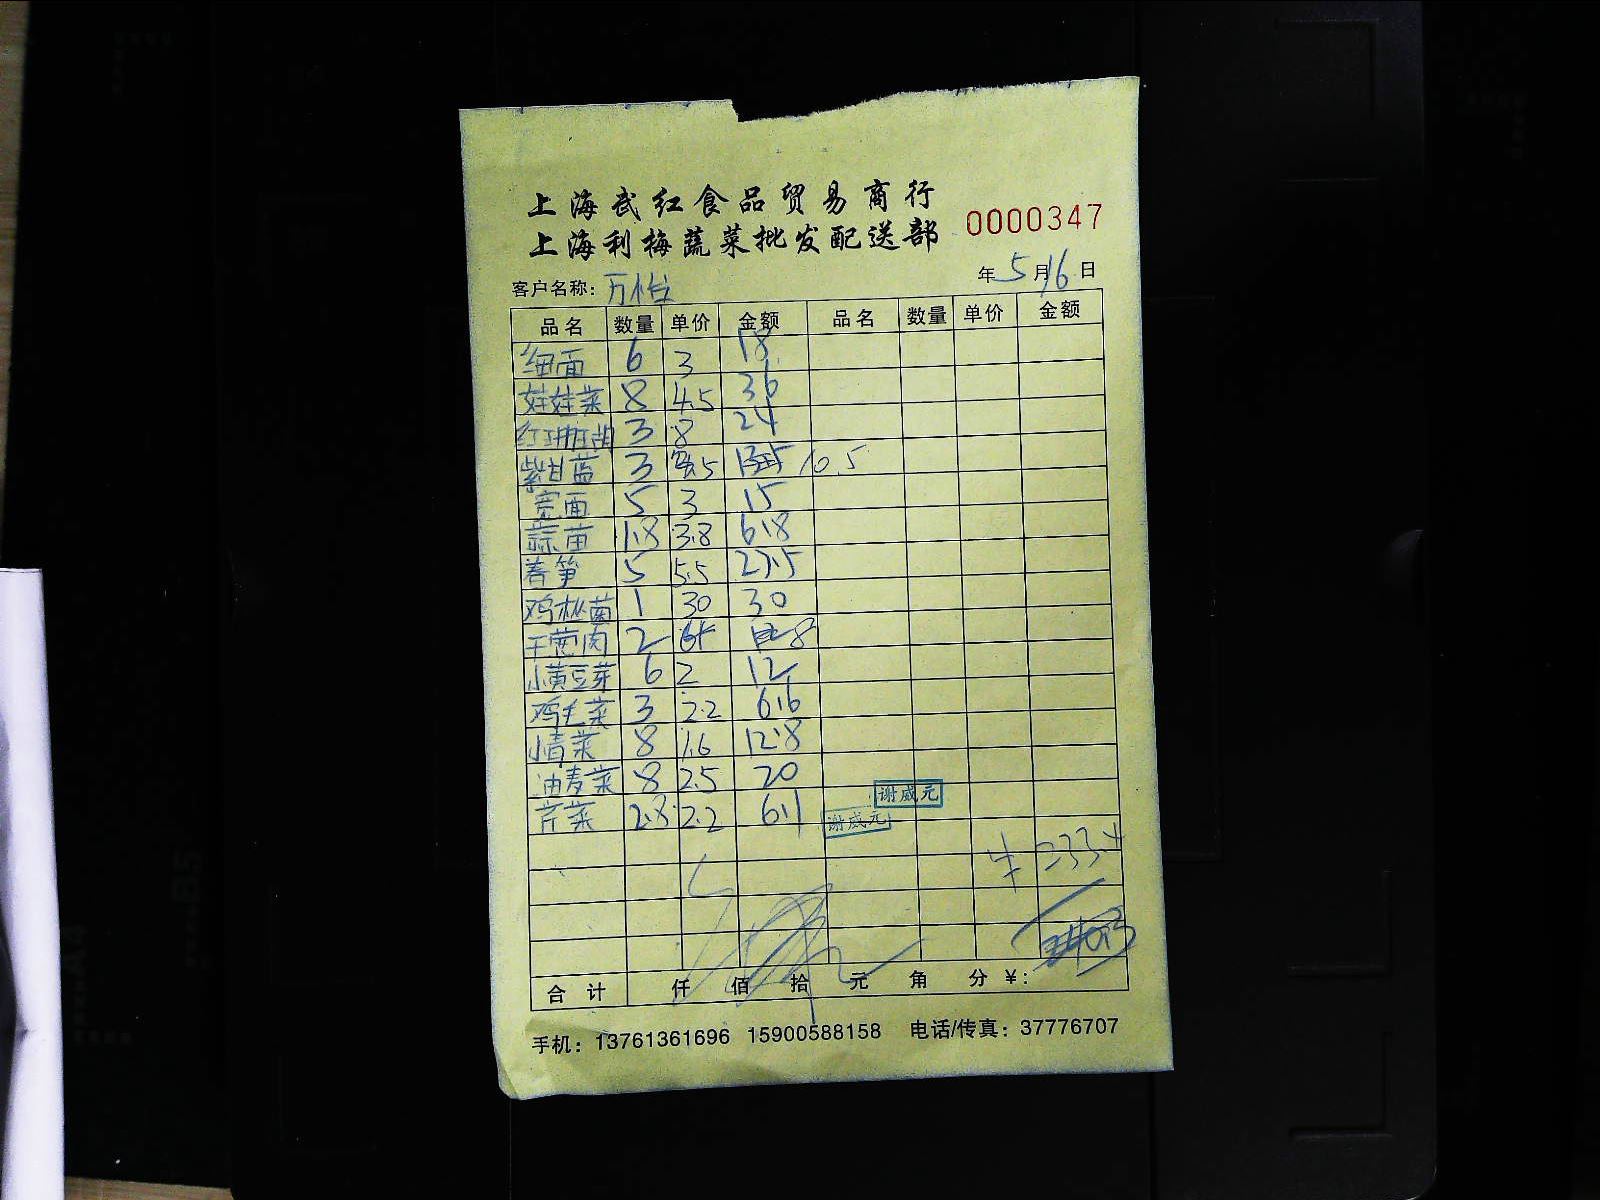 上海武红食品贸易商行
上海利梅蔬菜批发配送部
0000347
客户名称: 万怡
年 5 月 16 日
品名 数量 单价 金额 品名 数量 单价 金额
细面 6 3 18
娃娃菜 8 4.5 36
红珊瑚 3 8 24
紫甘蓝 3 3.5 10.5
宽面 5 3 15
蒜苗 1.8 3.8 6.8
春笋 5 5.5 27.5
鸡枞菌 1 30 30
干葱肉 2 8
小黄豆芽 6 2 12
鸡毛菜 3 2.2 6.6
小青菜 8 1.6 12.8
油麦菜 8 2.5 20
谢威元
芹菜 2.8 2.2 6.1
谢威元
233.4
合计 仟 佰 拾 元 角 分 ¥:
手机: 13761361696 15900588158 电话/传真: 37776707